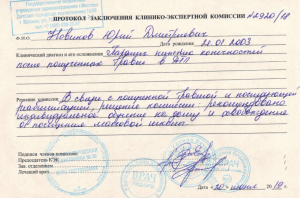 ПРОТОКОЛ ЗАКЛЮЧЕНИЯ КЛИНИКО-ЭКСПЕРТНОЙ КОМИССИИ №2920/18
Ф.И.О. Новиков Юрий Дмитриевич
Дата рождения 22.01.2003
Клинический диагноз и его основания Паралич нижних конечностей
после полученных травм в ДТП
Решение комиссии В связи с полученной травмой и последующей
реабилитацией, решение комиссии: рекомендовано
индивидуальное обучение на дому и освобождение
от посещения массовой школы
Подписи членов комиссии:
Председатель КЭК
Зав. отделением
Лечащий врач
ВРАЧ
Дата «20» июня 2018 г.